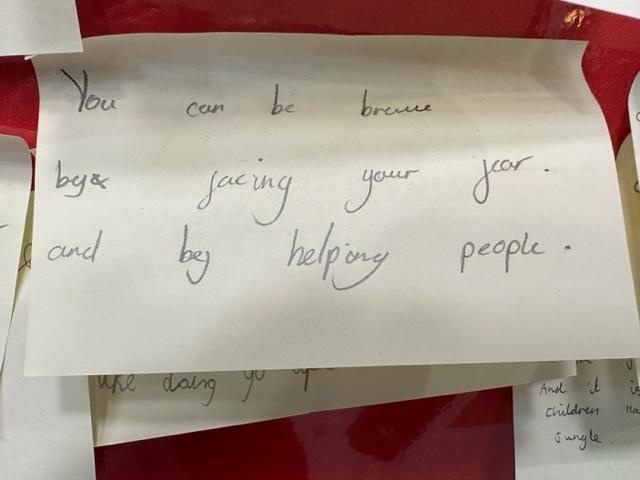 You can be brave
by facing your fear.
and by helping people.
like doing yo
And it is
children Ha
jungle.